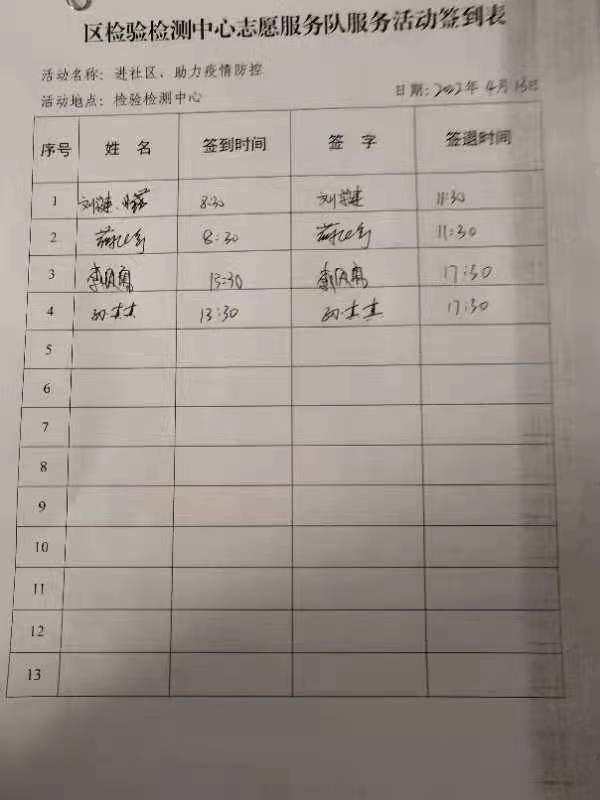 区检验检测中心志愿服务队服务活动签到表
活动名称：进社区、助力疫情防控
活动地点：检验检测中心
日期：2022年4月15日
序号 姓名 签到时间 签字 签退时间
1 8:30 11:30
2 8:30 11:30
3 13:30 17:30
4 13:30 17:30
5
6
7
8
9
10
11
12
13